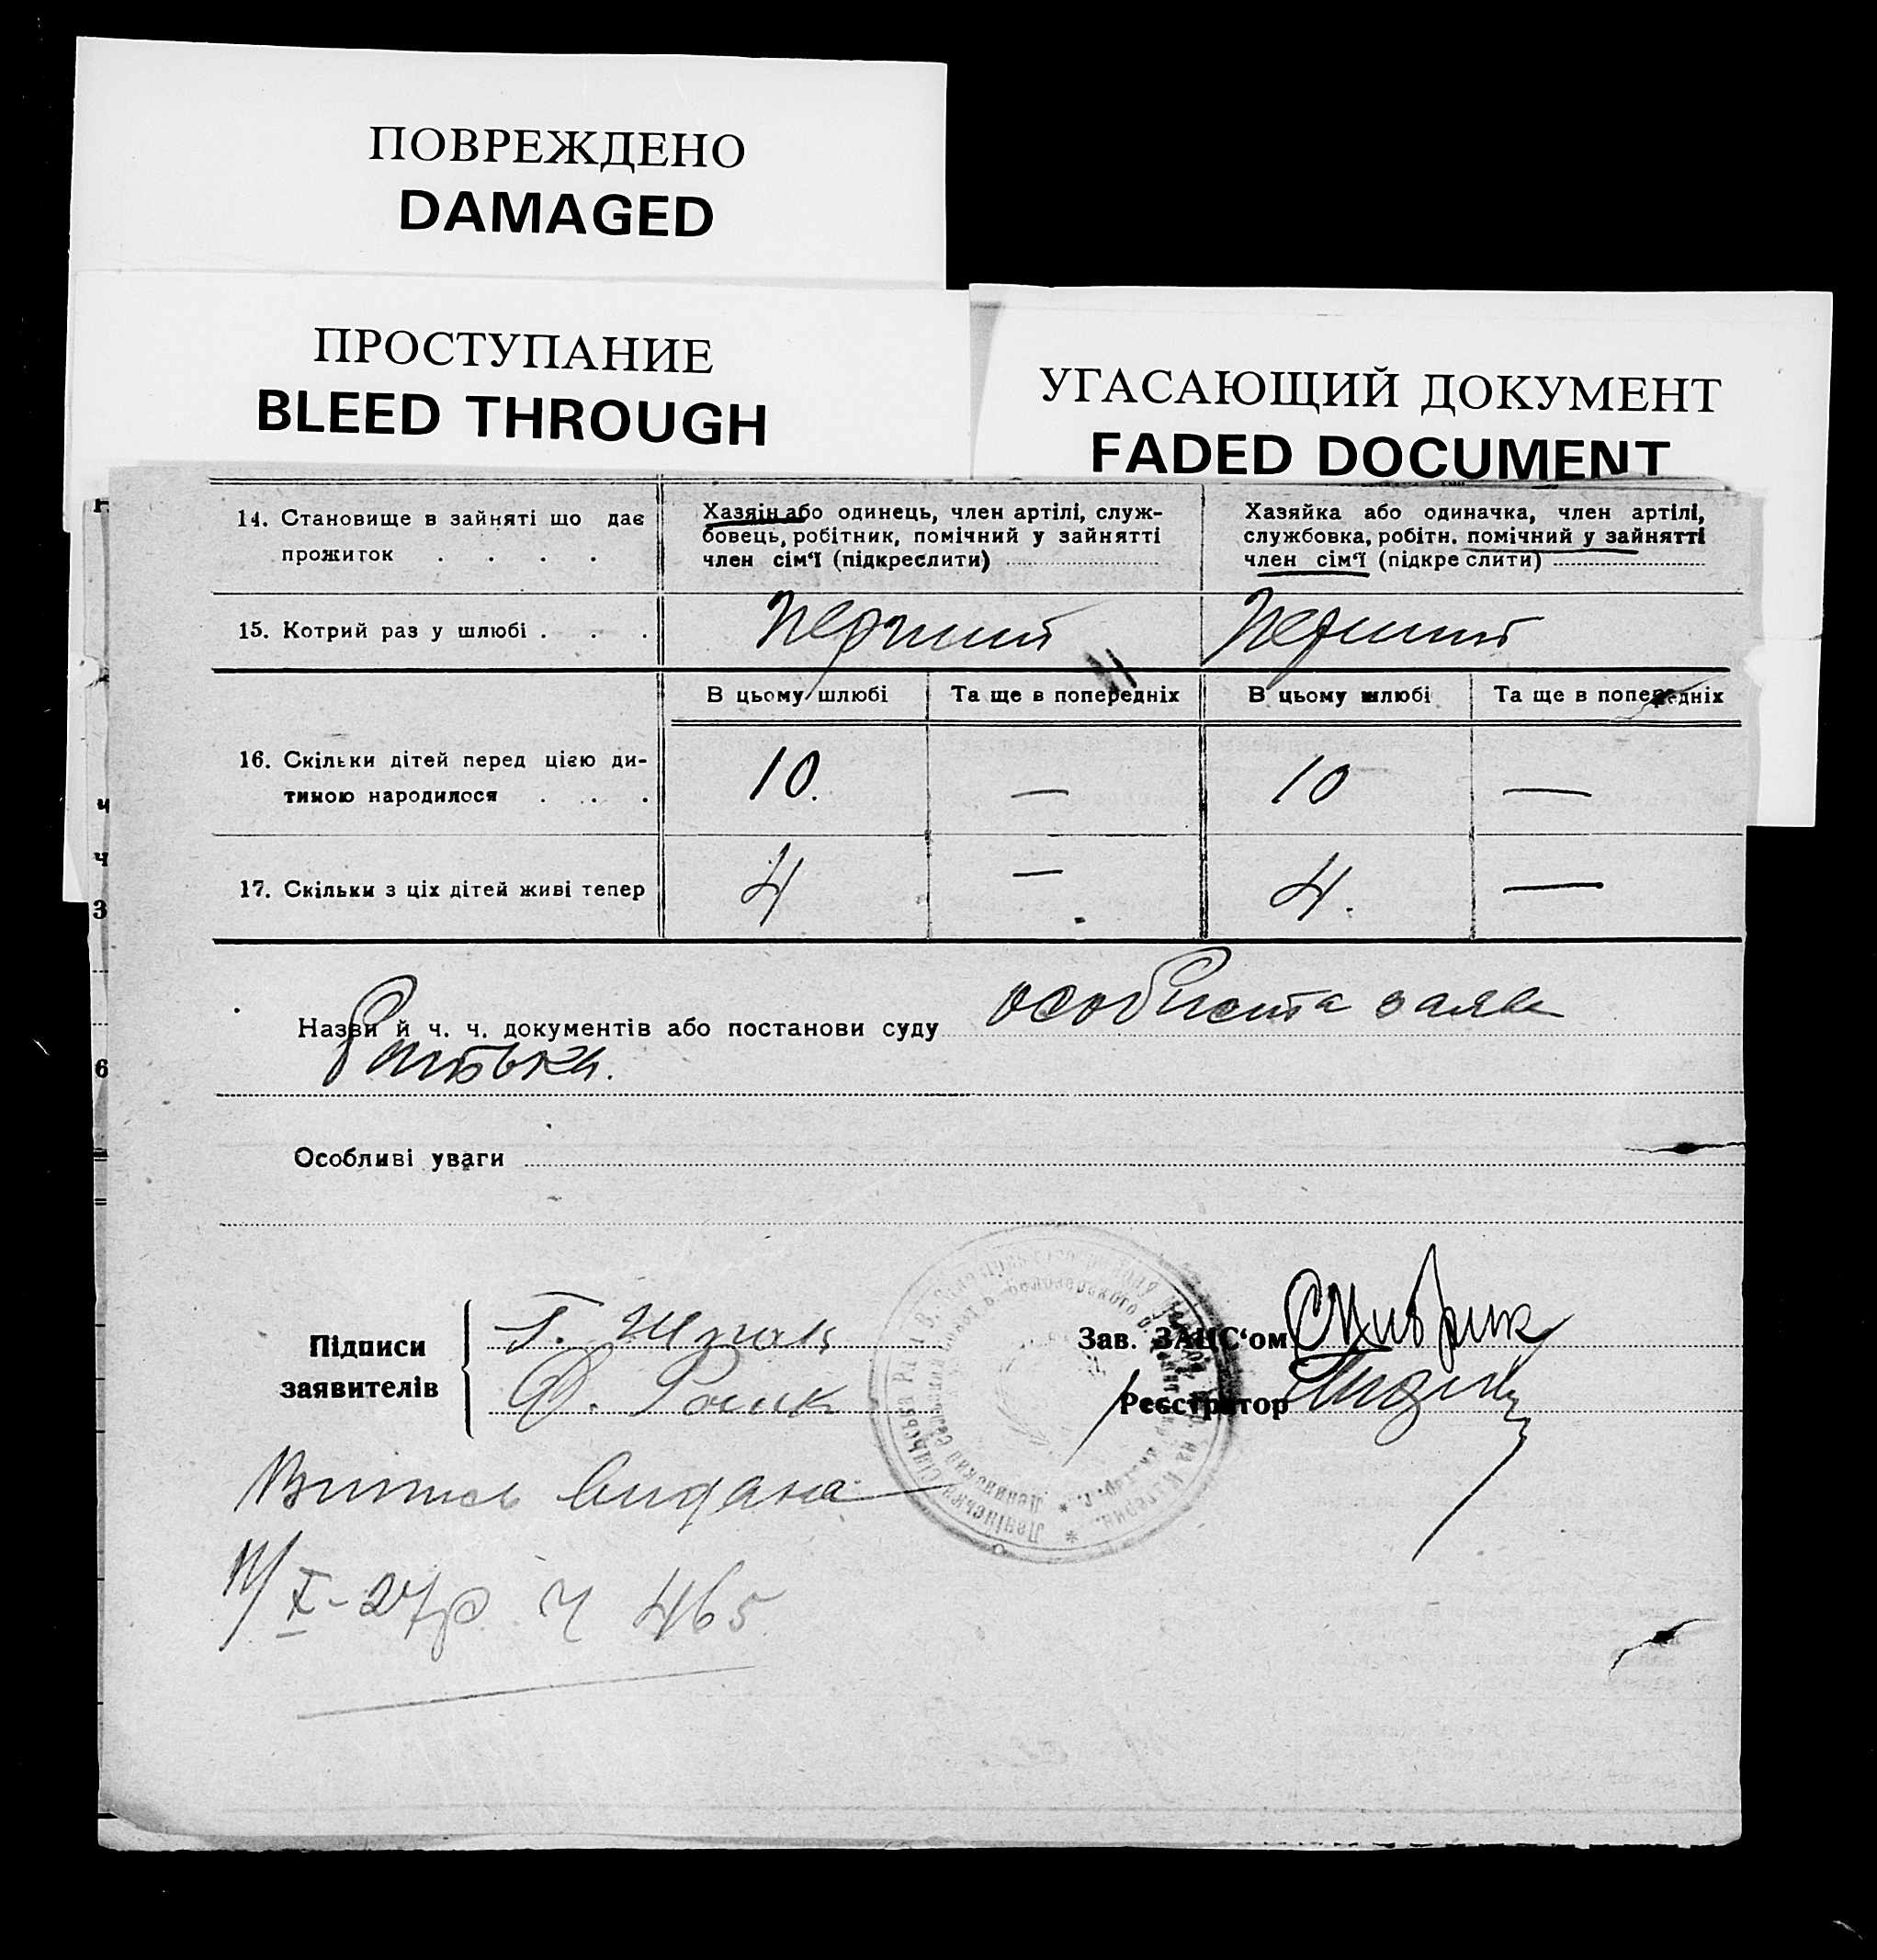 ПОВРЕЖДЕНО
DAMAGED
ПРОСТУПАНИЕ
BLEED THROUGH
УГАСАЮЩИЙ ДОКУМЕНТ
FADED DOCUMENT
14. Становище в зайняті що дає
прожиток . . . .
Хазяїн або одинець, член артілі, служ-
бовець, робітник, помічний у зайнятті
член сім'ї (підкреслити)
Хазяйка або одиначка, член артілі,
службовка, робітн. помічний у зайнятті
член сім'ї (підкре слити)
15. Котрий раз у шлюбі . . .
Перший
Перший
В цьому шлюбі
Та ще в попередніх
В цьому шлюбі
Та ще в попередніх
16. Скільки дітей перед цією ди-
тиною народилося . . . .
10.
—
10
—
17. Скільки з ціх дітей живі тепер
4
—
4.
—
Назви й ч. ч. документів або постанови суду особиста заява
батька.
Особливі уваги
Підписи
заявителів
Г.
Ф.
Зав. ЗАЦС'ом
Реєстратор
Випись видана
X-27р. ч 465